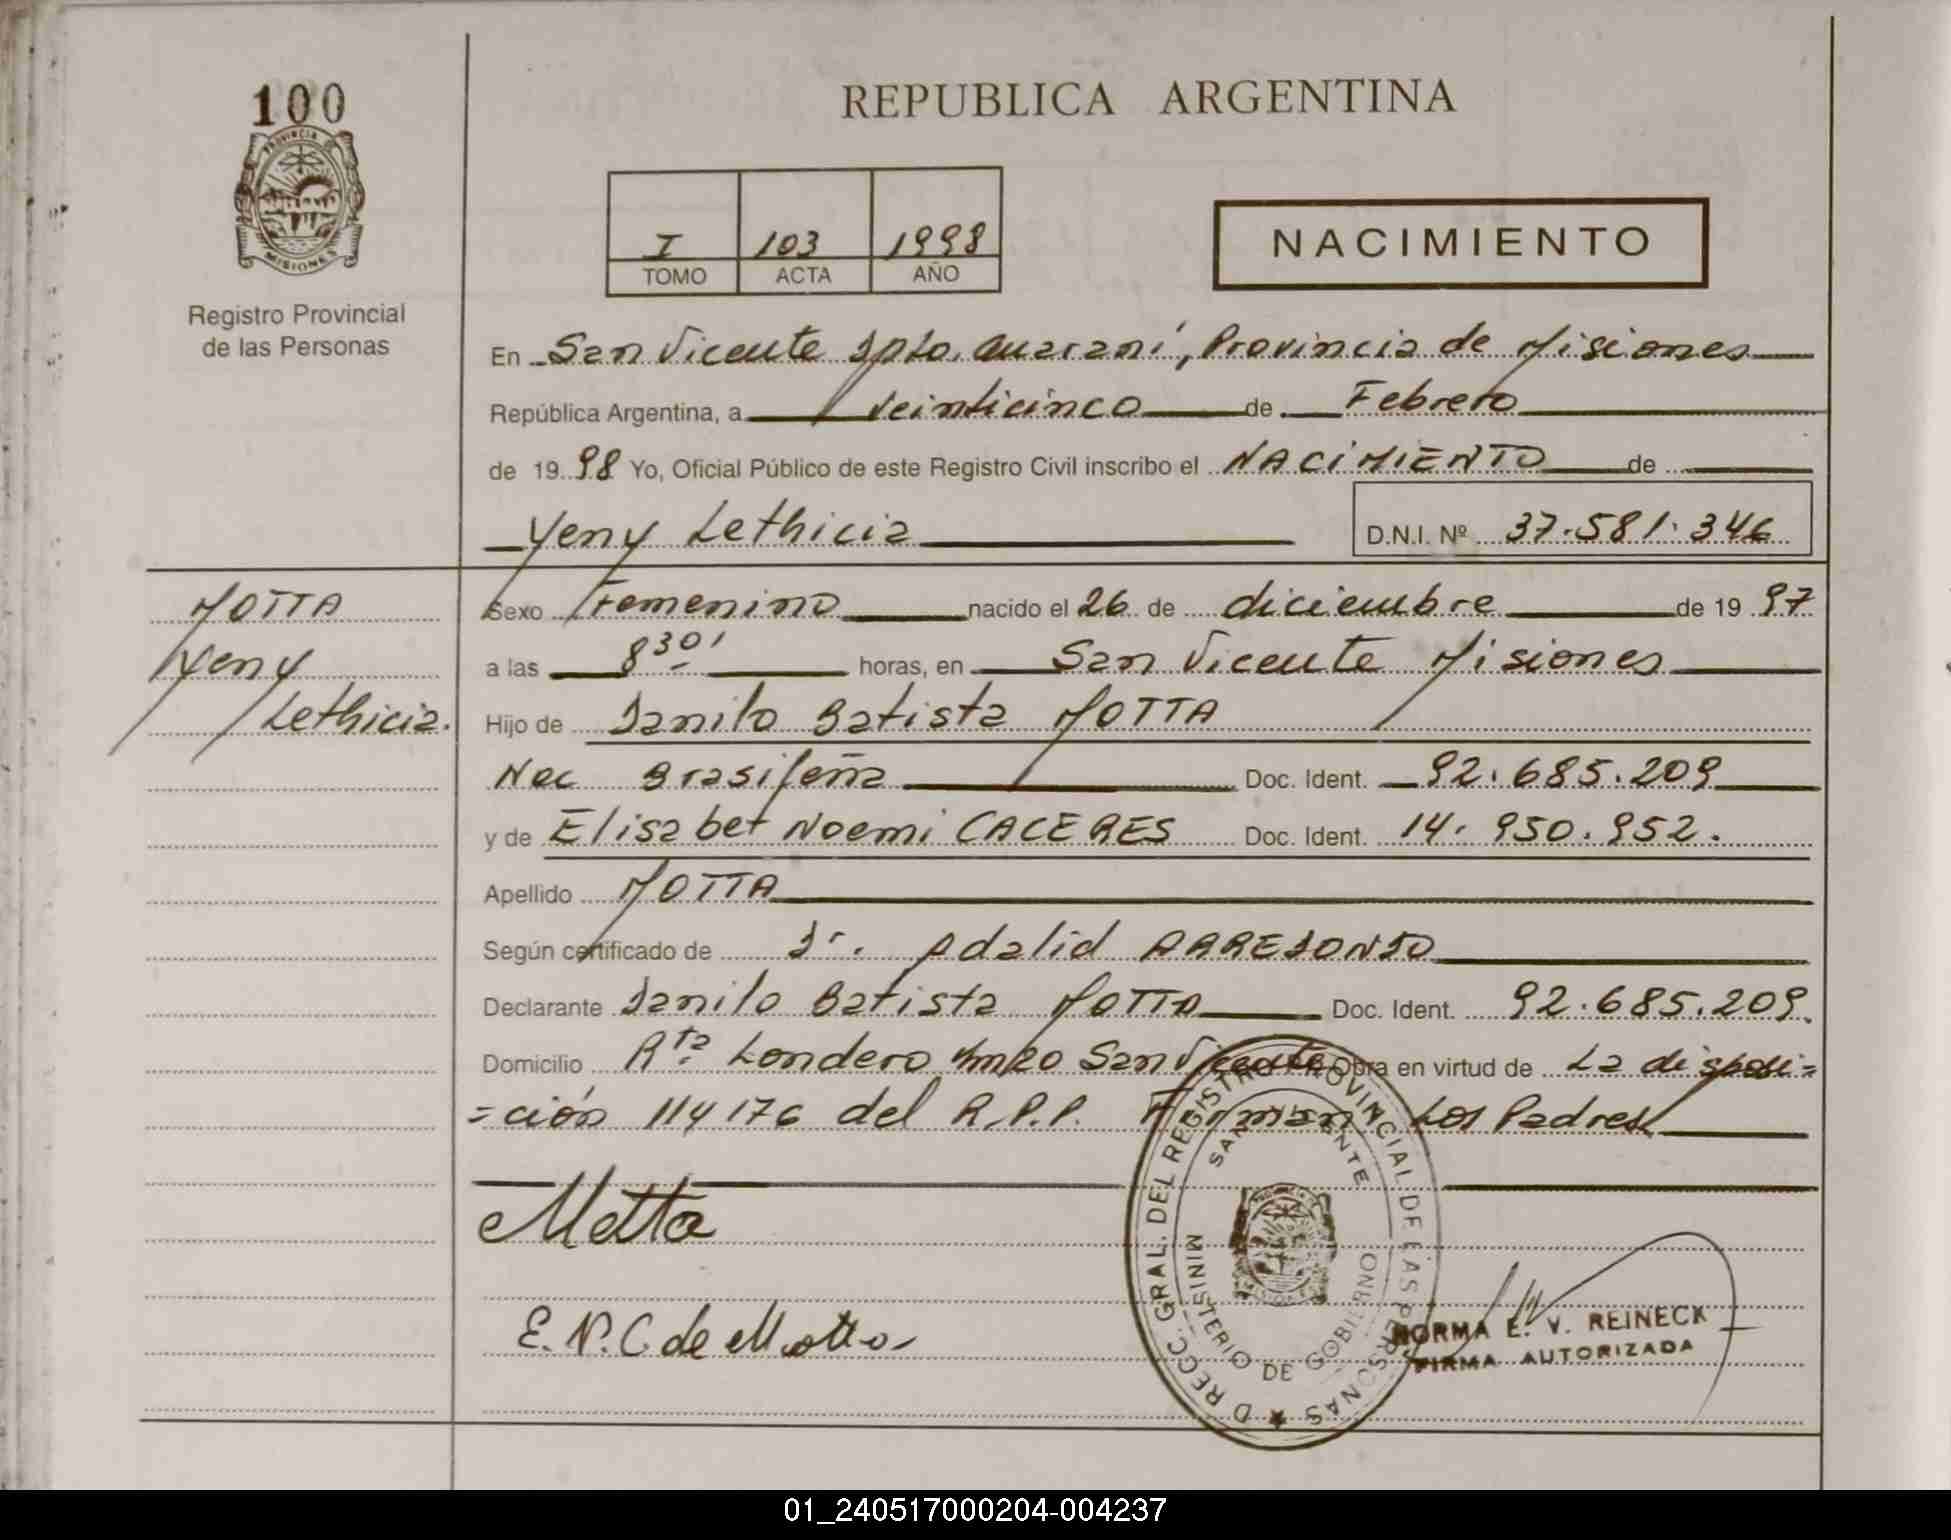 100
REPUBLICA ARGENTINA
PROVINCIA DE
MISIONES
Registro Provincial
de las Personas
I 103 1998
TOMO ACTA AÑO
NACIMIENTO
En San Vicente Dpto. Guaraní, Provincia de Misiones
República Argentina, a veinticinco de Febrero
de 19 98 Yo, Oficial Público de este Registro Civil inscribo el NACIMIENTO de
Yeny Lethicia
D.N.I. Nº 37.581.346
MOTTA
Yeny
Lethicia.
Sexo Femenino nacido el 26 de diciembre de 19 97
a las 8 30' horas, en San Vicente Misiones
Hijo de Danilo Batista MOTTA
Nac Brasileña Doc. Ident. 92.685.209
y de Elisabet Noemi CACERES Doc. Ident. 14.950.952.
Apellido MOTTA
Según certificado de Dr. Adalid ARREDONDO
Declarante Danilo Batista MOTTA Doc. Ident. 92.685.209.
Domicilio Rta Londero Km 20 San Vicente Obra en virtud de La disposi=
=ción 114176 del R.P.P. Firman Los Padres
Motta
E. N. C. de Motta
D REGC. GRAL. DEL REGISTRO PROVINCIAL DE LAS PERSONAS
SAN VICENTE
MINISTERIO DE GOBIERNO
NORMA E. V. REINECK
FIRMA AUTORIZADA
01_240517000204-004237